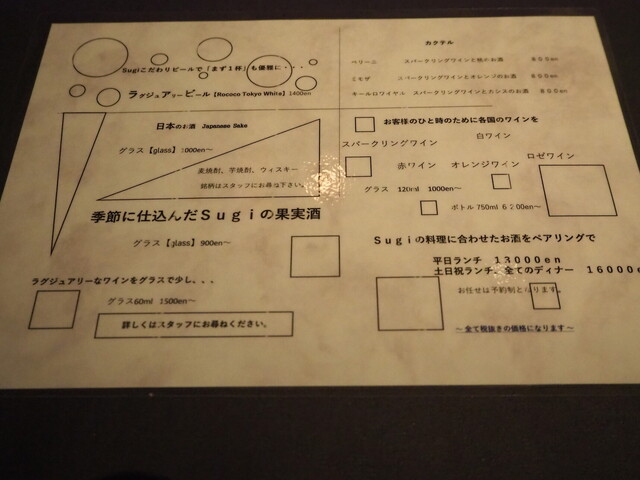 Sugiこだわりビールで「まず１杯」も優雅に・・・
ラグジュアリービール【Rococo Tokyo White】1400en
日本のお酒 Japanese Sake
グラス【glass】1000en～
麦焼酎、芋焼酎、ウィスキー
銘柄はスタッフにお尋ね下さい。
季節に仕込んだＳｕｇｉの果実酒
グラス【glass】900en～
ラグジュアリーなワインをグラスで少し、、、
グラス60ml 1500en～
詳しくはスタッフにお尋ねください。
カクテル
ベリーニ スパークリングワインと桃のお酒 ８５０en
ミモザ スパークリングワインとオレンジのお酒 ８５０en
キールロワイヤル スパークリングワインとカシスのお酒 ８５０en
お客様のひと時のために各国のワインを
白ワイン
スパークリングワイン
ロゼワイン
赤ワイン オレンジワイン
グラス 120ml 1000en～
ボトル 750ml ６２00en～
Ｓｕｇｉの料理に合わせたお酒をペアリングで
平日ランチ １３０００ｅｎ
土日祝ランチ、全てのディナー １６０００e
お任せは予約制となります。
～全て税抜きの価格になります～